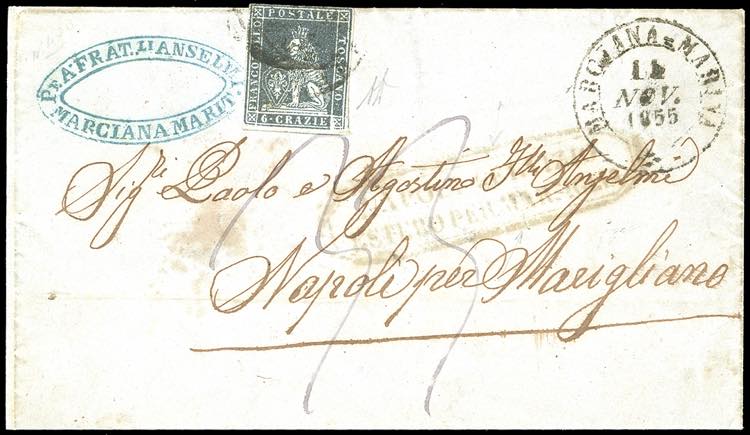 Pe. A FRAT.LLI ANSELMI
MARCIANA MARIT.
FRANCOBOLLO POSTALE TOSCANO
6·CRAZIE
MARCIANA=MARINA
11
NOV.
1855
Sig.ri Paolo e Agostino F.lli Anselmi
Napoli per Marigliano